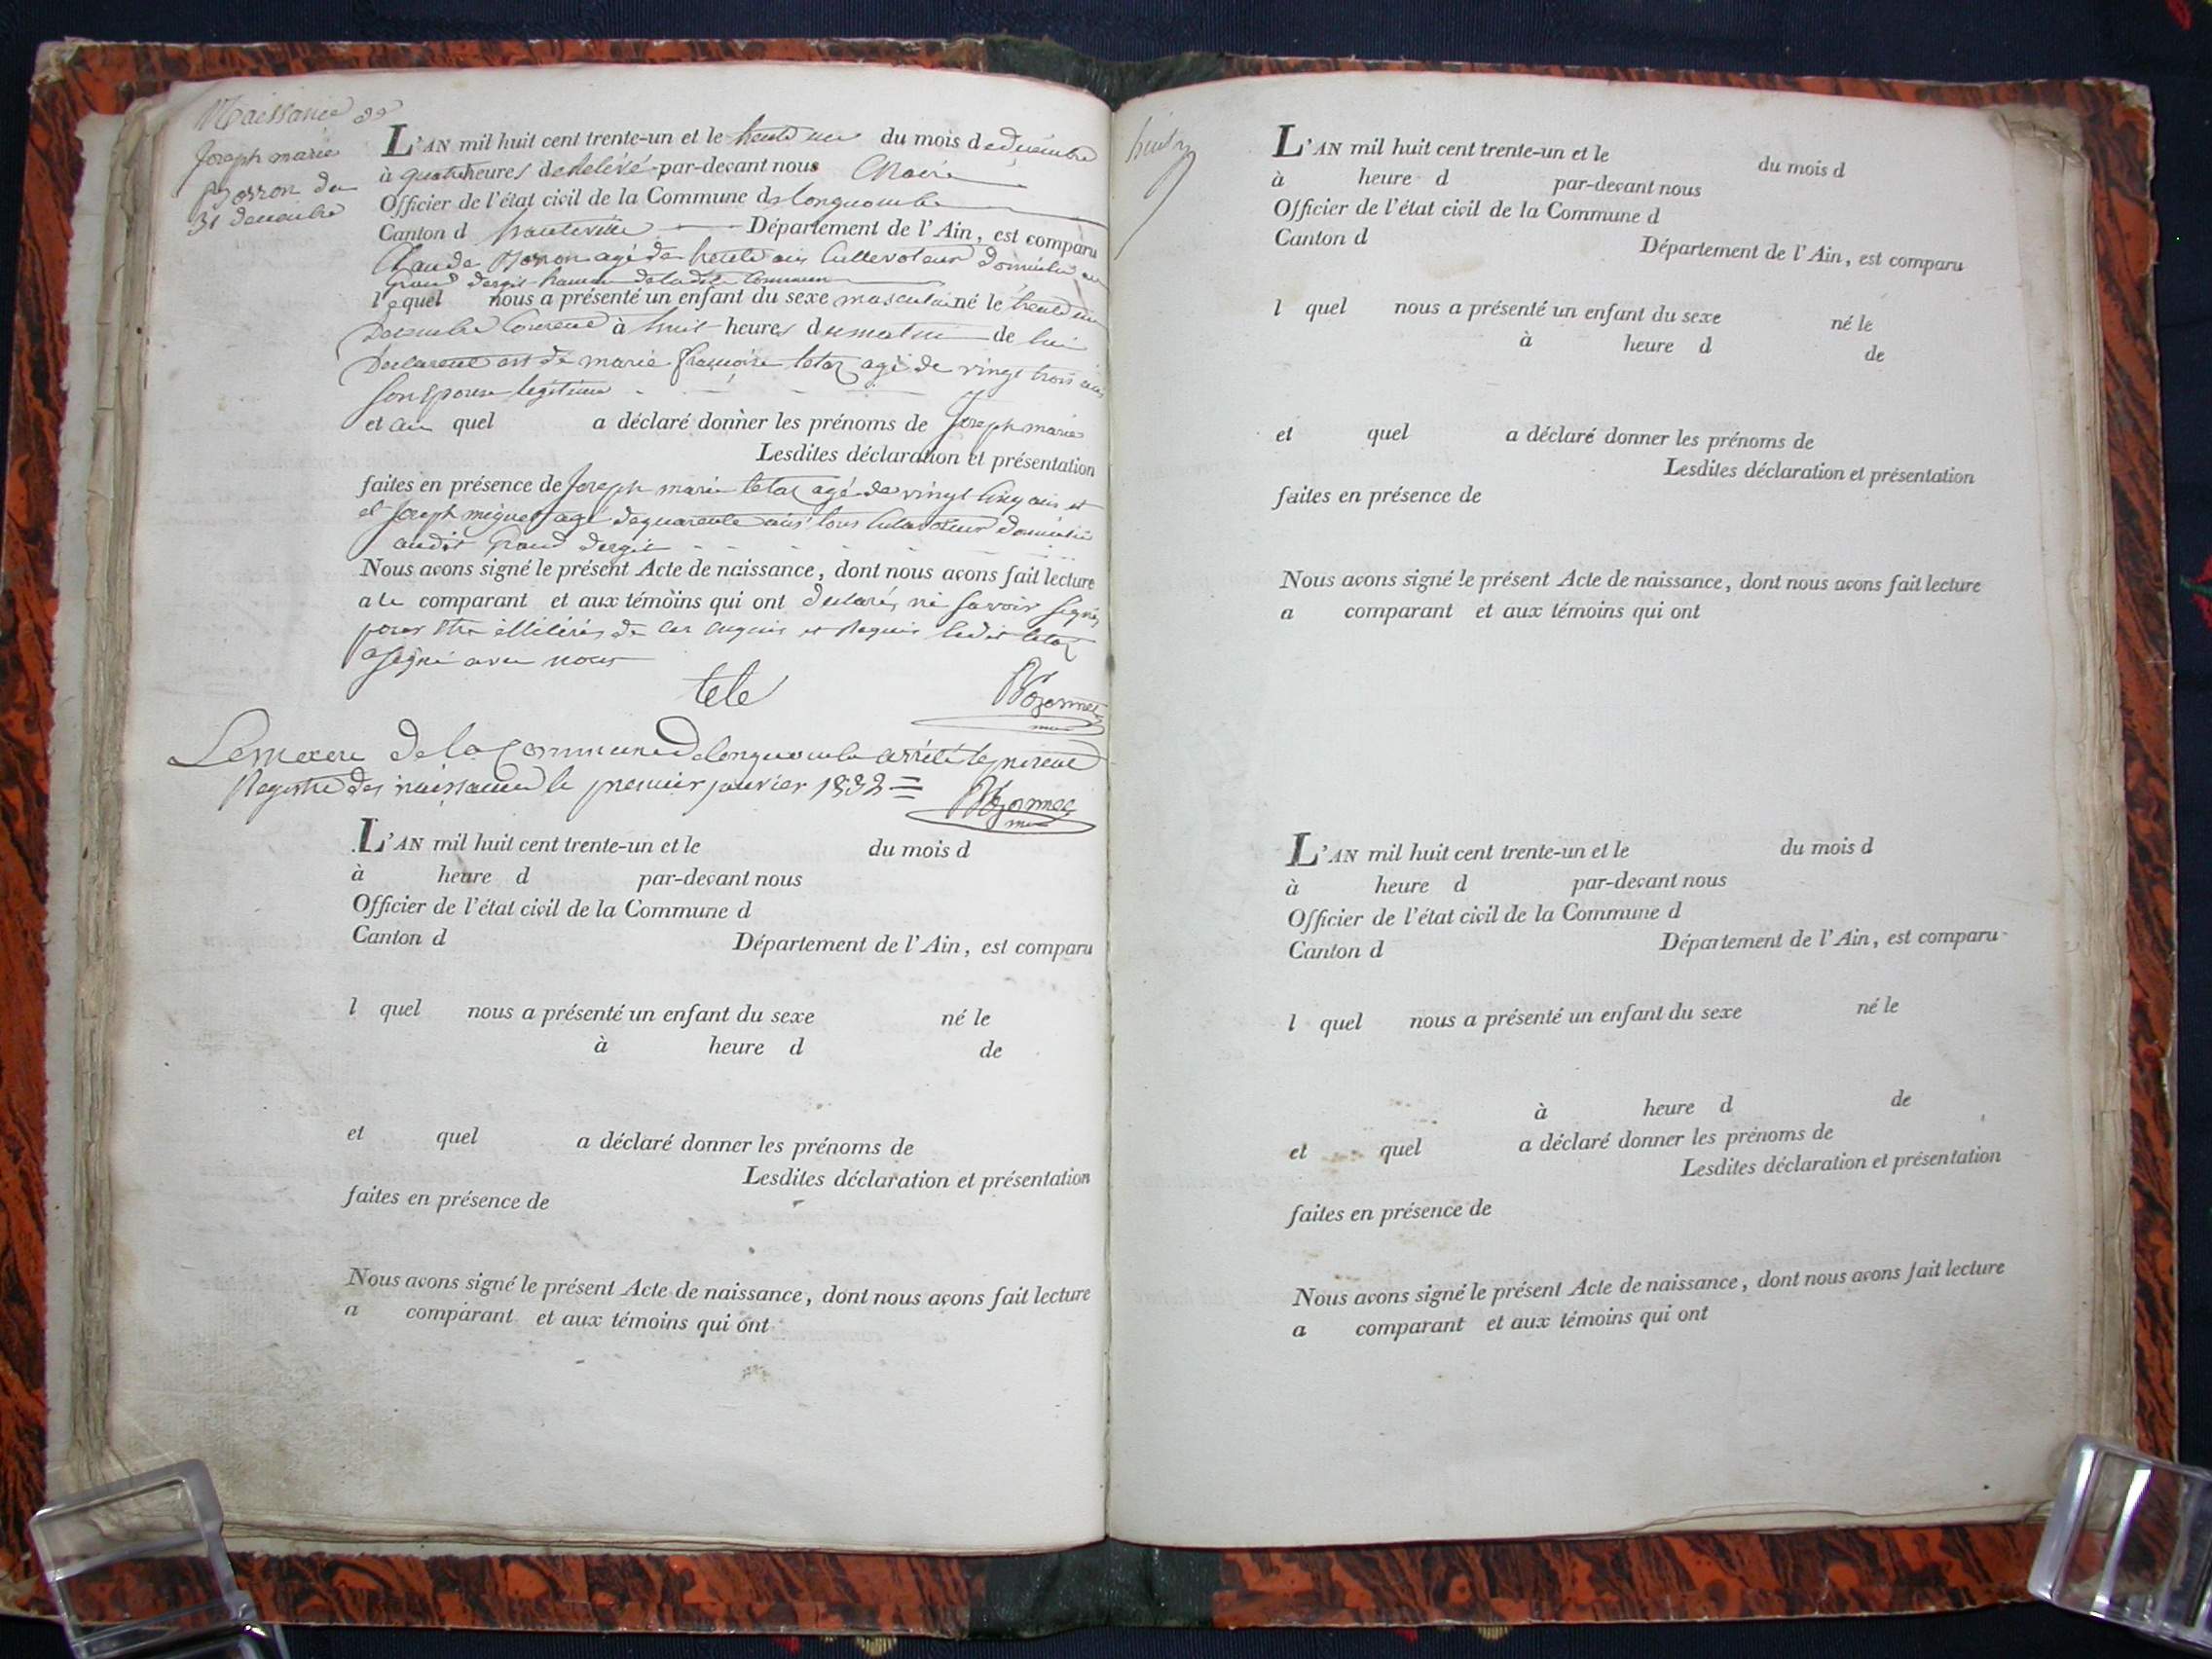 Naissance de
Joseph marie
Borron du
31 decembre
L'AN mil huit cent trente-un et le trente un du mois de decembre
à quatre heures de Relevé par-devant nous Maire
Officier de l'état civil de la Commune de longecombe
Canton d hauteville Département de l'Ain, est comparu
Claude Borron agé de trente ans Cultivateur domicilié au
grand dergit hameau de ladite Commune
lequel nous a présenté un enfant du sexe masculin né le trente un
Decembre Courent à huit heures du matin de lui
Declarent et de marie françoise tetaz agé de vingt trois ans
son Epouse legitime
et au quel a déclaré donner les prénoms de Joseph marie
Lesdites déclaration et présentation
faites en présence de Joseph marie tetaz agé de vingt Cinq ans et
et Joseph miguet agé de quarente ans tous Cultivateur domicilié
audit grand dergit
Nous avons signé le présent Acte de naissance, dont nous avons fait lecture
a le comparant et aux témoins qui ont declarés ne savoir signé
pour etre illitérés de ce enquis et Requis ledit tetaz
a signé avec nous
tete
Le maire de la Commune de longecombe arrêté le présent
Registre des naissances le premier janvier 1832
L'AN mil huit cent trente-un et le du mois d
à heure d par-devant nous
Officier de l'état civil de la Commune d
Canton d Département de l'Ain, est comparu
l quel nous a présenté un enfant du sexe né le
à heure d de
et quel a déclaré donner les prénoms de
Lesdites déclaration et présentation
faites en présence de
Nous avons signé le présent Acte de naissance, dont nous avons fait lecture
a comparant et aux témoins qui ont
L'AN mil huit cent trente-un et le du mois d
à heure d par-devant nous
Officier de l'état civil de la Commune d
Canton d Département de l'Ain, est comparu
l quel nous a présenté un enfant du sexe né le
à heure d de
et quel a déclaré donner les prénoms de
Lesdites déclaration et présentation
faites en présence de
Nous avons signé le présent Acte de naissance, dont nous avons fait lecture
a comparant et aux témoins qui ont
L'AN mil huit cent trente-un et le du mois d
à heure d par-devant nous
Officier de l'état civil de la Commune d
Canton d Département de l'Ain, est comparu
l quel nous a présenté un enfant du sexe né le
à heure d de
et quel a déclaré donner les prénoms de
Lesdites déclaration et présentation
faites en présence de
Nous avons signé le présent Acte de naissance, dont nous avons fait lecture
a comparant et aux témoins qui ont